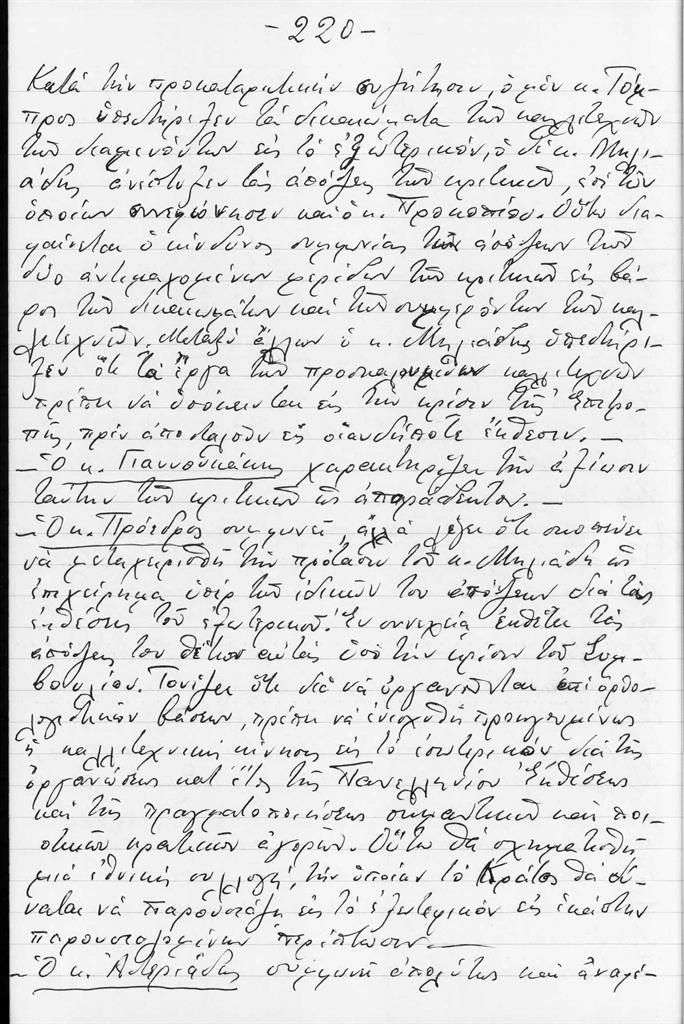 -220-
Κατά τήν προκαταρκτικήν συζήτησιν, ὁ μέν κ. Τόμ-
προς ὑπεστήριξεν τά δικαιώματα τῶν καλλιτεχνῶν
τῶν διαμενόντων εἰς τό ἐξωτερικόν, ὁ δέ κ. Μηλι-
άδης ἀνέπτυξεν τάς ἀπόψεις τῶν κριτικῶν, ἐπί τῶν
ὁποίων συνεφώνησεν καί ὁ κ. Προκοπίου. Οὕτω δια-
φαίνεται ὁ κίνδυνος συμφωνίας τῶν ἀπόψεων τῶν
δύο ἀντιμαχομένων μερίδων τῶν κριτικῶν εἰς βά-
ρος τῶν δικαιωμάτων καί τῶν συμφερόντων τῶν καλ-
λιτεχνῶν. Μεταξύ ἄλλων ὁ κ. Μηλιάδης ὑπεστήρι-
ξεν ὅτι τά ἔργα τῶν προσκαλουμένων καλλιτεχνῶν
πρέπει νά ὑπόκεινται εἰς τήν κρίσιν τῆς Ἐπιτρο-
πῆς, πρίν ἀποσταλοῦν εἰς οἱανδήποτε ἔκθεσιν. —
— Ὁ κ. Γιαννουκάκης χαρακτηρίζει τήν ἀξίωσιν
ταύτην τῶν κριτικῶν ὡς ἀπαράδεκτον. —
— Ὁ κ. Πρόεδρος συμφωνεῖ, ἀλλά λέγει ὅτι σκοπεύει
νά μεταχειρισθῇ τήν πρότασιν τοῦ κ. Μηλιάδη ὡς
ἐπιχείρημα ὑπέρ τῶν ἰδικῶν του ἀπόψεων διά τάς
ἐκθέσεις τοῦ ἐξωτερικοῦ. Ἐν συνεχείᾳ ἐκθέτει τάς
ἀπόψεις του θέτων αὐτάς ὑπό τήν κρίσιν τοῦ Συμ-
βουλίου. Τονίζει ὅτι διά νά ὀργανοῦνται ἐπί ὀρθο-
λογιστικῶν βάσεων, πρέπει νά ἐνισχυθῇ προηγουμένως
ἡ καλλιτεχνική κίνησις εἰς τό ἐσωτερικόν διά τῆς
ὀργανώσεως κατ' ἔτος τῆς Πανελληνίου Ἐκθέσεως
καί τῆς πραγματοποιήσεως σημαντικῶν καί ποι-
οτικῶν κρατικῶν ἀγορῶν. Οὕτω θά σχηματισθῇ
μιά ἐθνική συλλογή, τήν ὁποίαν τό Κράτος θά δύ-
ναται νά παρουσιάζῃ εἰς τό ἐξωτερικόν εἰς ἑκάστην
παρουσιαζομένην περίπτωσιν. —
— Ὁ κ. Ἀστεριάδης συμφωνεῖ ἀπολύτως καί ἀναφέ-